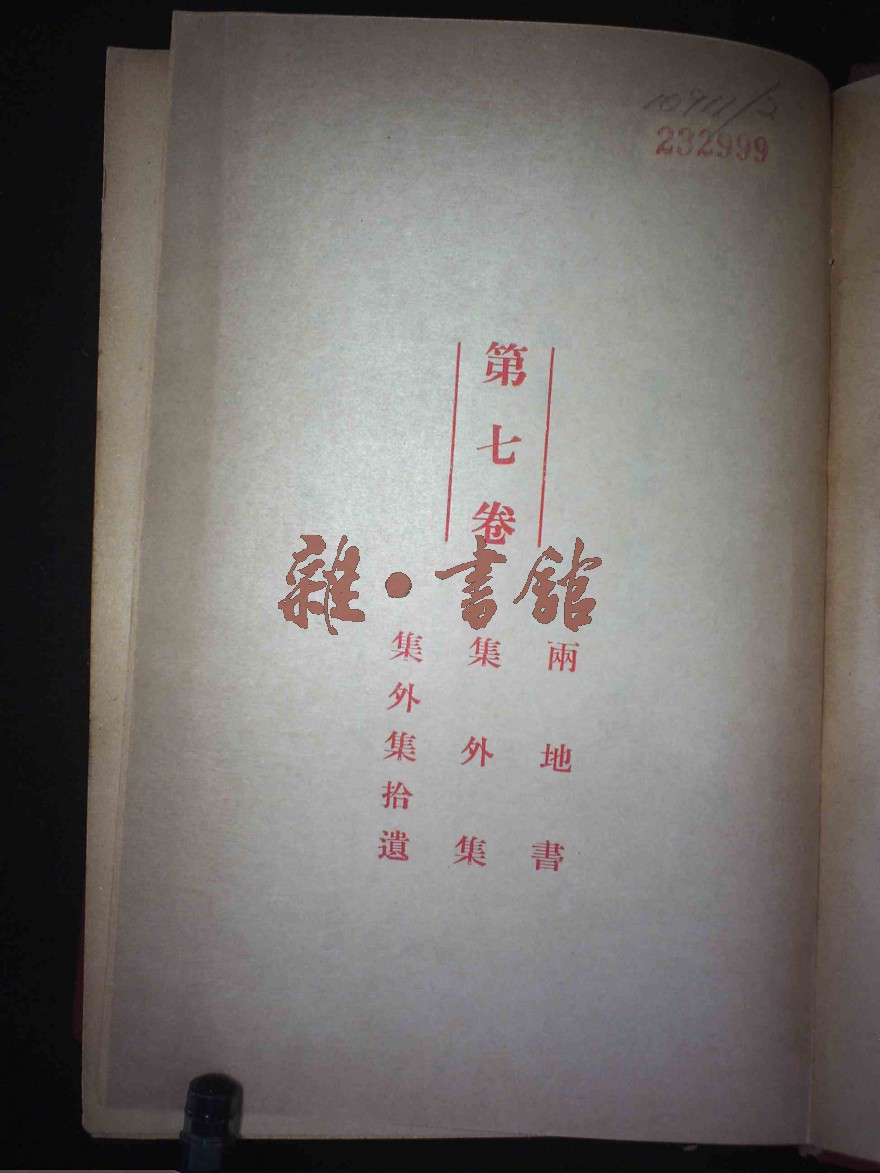 232999
第七卷
雜·書館
兩地書
集外集
集外集拾遺